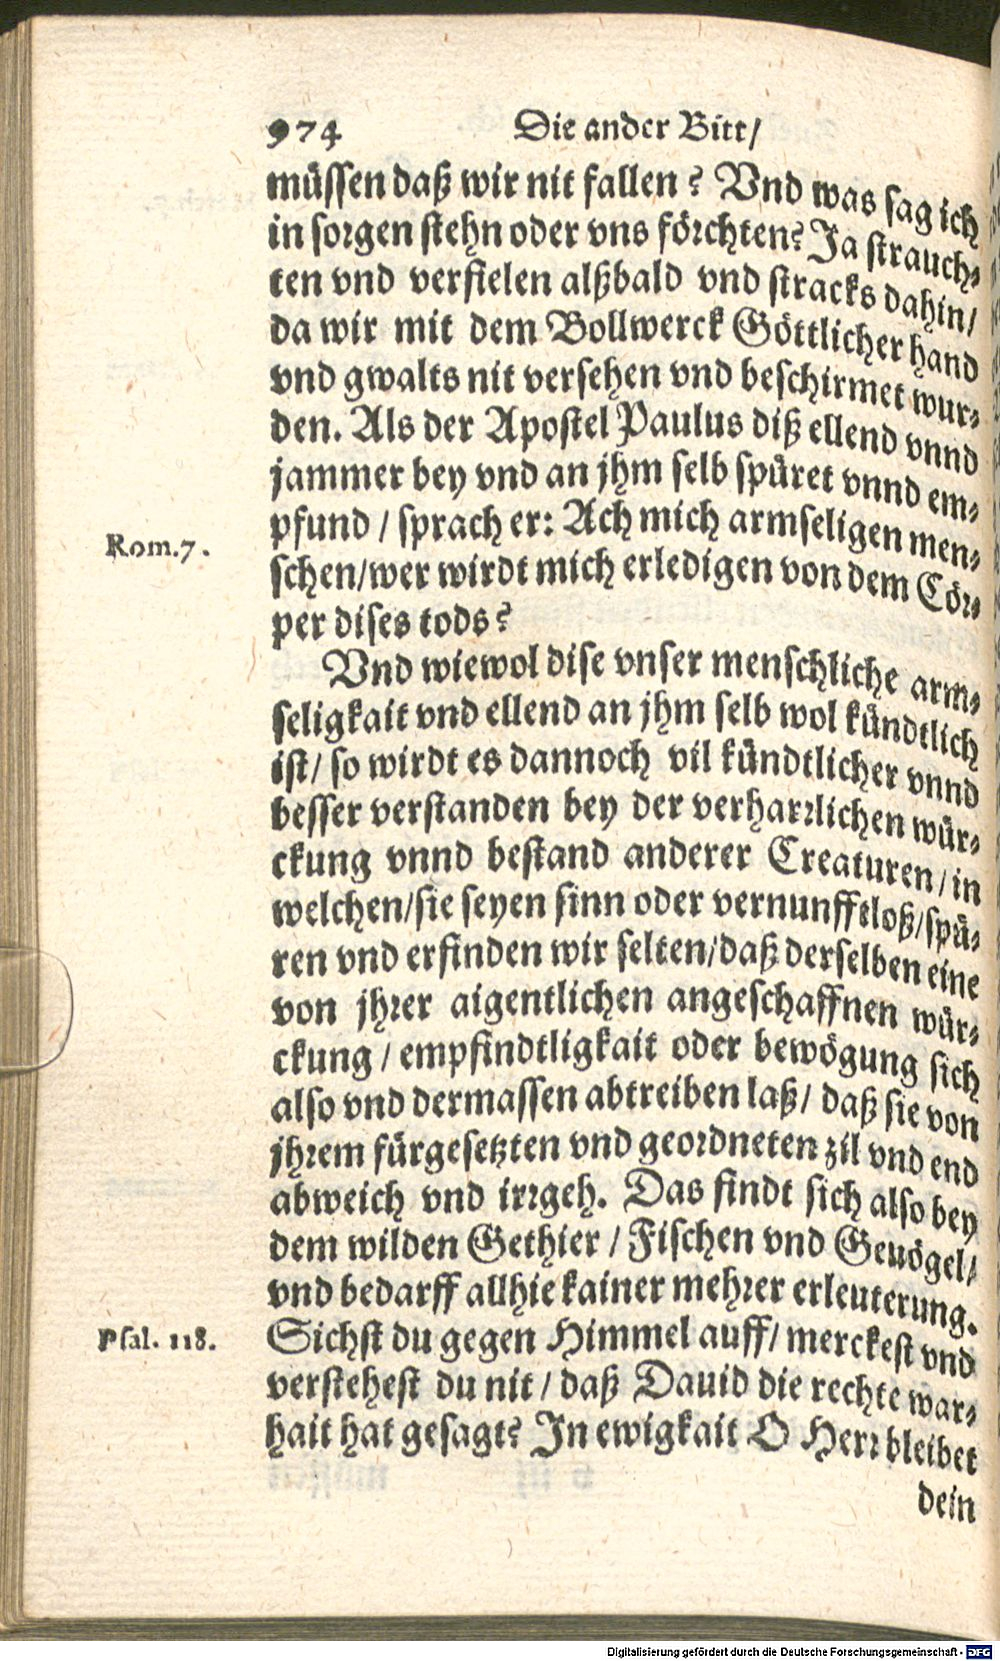 974 Die ander Bitt/
müssen daß wir nit fallen? Vnd was sag ich
in sorgen stehn oder vns förchten? Ja strauch⸗
ten vnd verfielen alßbald vnd stracks dahin/
da wir mit dem Bollwerck Göttlicher hand
vnd gwalts nit versehen vnd beschirmet wur⸗
den. Als der Apostel Paulus diß ellend vnnd
jammer bey vnd an jhm selb spüret vnnd em⸗
Rom. 7. pfund / sprach er: Ach mich armseligen men⸗
schen/wer wirdt mich erledigen von dem Cör⸗
per dises tods?
Vnd wiewol dise vnser menschliche arm⸗
seligkait vnd ellend an jhm selb wol kündtlich
ist/ so wirdt es dannoch vil kündtlicher vnnd
besser verstanden bey der verharrlichen wür⸗
ckung vnnd bestand anderer Creaturen/in
welchen/sie seyen sinn oder vernunfftloß/spü⸗
ren vnd erfinden wir selten/daß derselben eine
von jhrer aigentlichen angeschaffnen wür⸗
ckung / empfindtligkait oder bewögung sich
also vnd dermassen abtreiben laß/ daß sie von
jhrem fürgesetzten vnd geordneten zil vnd end
abweich vnd irrgeh. Das findt sich also bey
dem wilden Gethier / Fischen vnd Geuögel/
vnd bedarff allhie kainer mehrer erleuterung.
Psal. 118. Sichst du gegen Himmel auff/ merckest vnd
verstehest du nit/ daß Dauid die rechte war⸗
hait hat gesagt? In ewigkait O Herr bleibet
dein
Digitalisierung gefördert durch die Deutsche Forschungsgemeinschaft - DFG